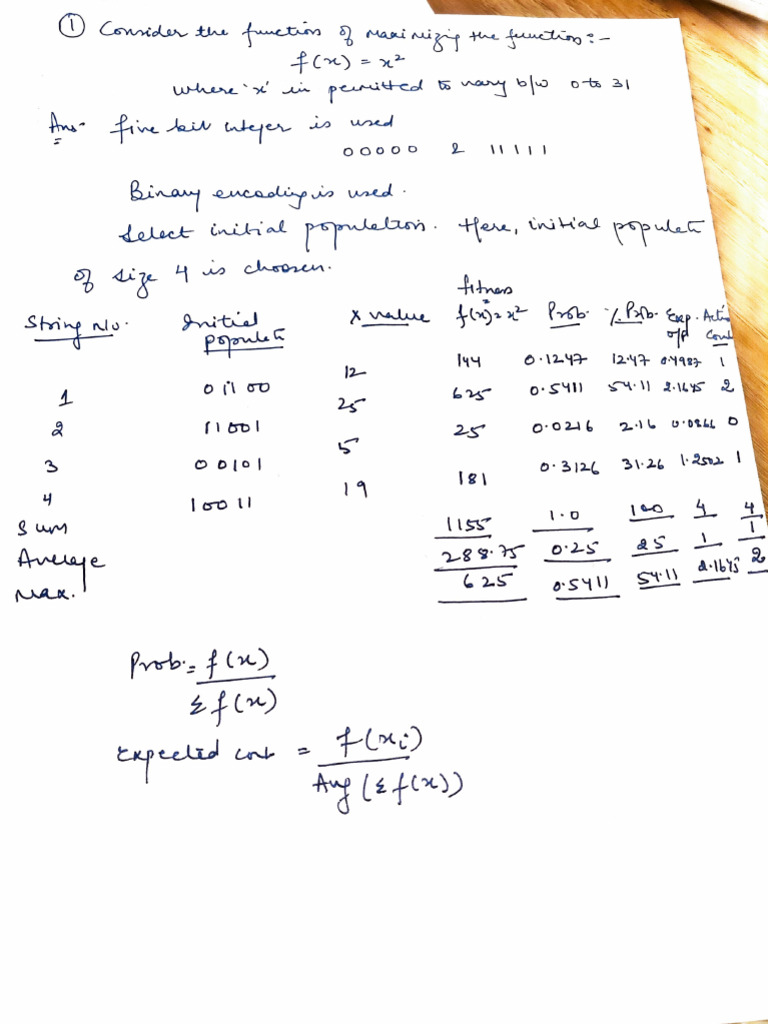 ① Consider the function of maximizing the function:-
f(x) = x²
where 'x' is permitted to vary b/w 0 to 31
Ans- five bit integer is used
00000 & 11111
Binary encoding is used.
Select initial population. Here, initial populati
of size 4 is choosen.
String No. Initial populati X value fitness f(x)=x² Prob. % Prob. Exp. o/p Actu Count
1 01100 12 144 0.1247 12.47 0.4987 1
2 11001 25 625 0.5411 54.11 2.1645 2
3 00101 5 25 0.0216 2.16 0.0866 0
4 10011 19 181 0.3126 31.26 1.2502 1
Sum 1155 1.0 100 4 4
Average 288.75 0.25 25 1 1
Max. 625 0.5411 54.11 2.1645 2
Prob. = f(x)
Σf(x)
Expected cont = f(xi)
Avg (Σf(x))